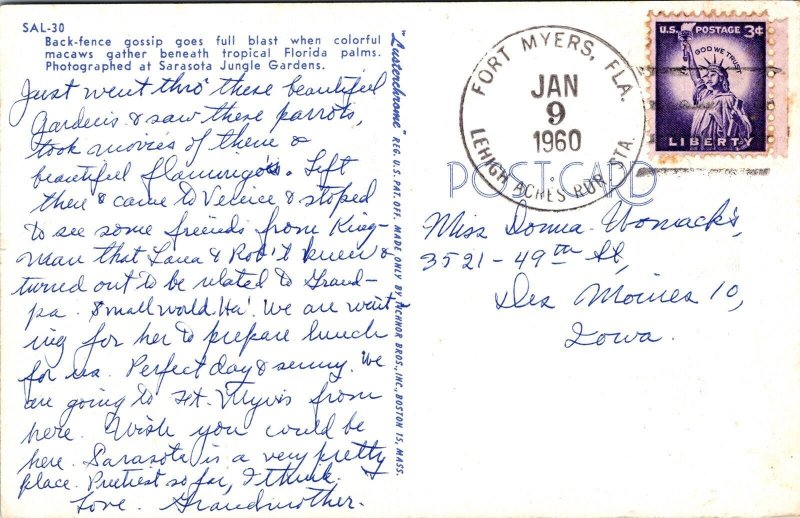 SAL-30
Back-fence gossip goes full blast when colorful
macaws gather beneath tropical Florida palms.
Photographed at Sarasota Jungle Gardens.
Just went thro' these beautiful
Gardens & saw these parrots,
took movies of them &
beautiful flamingo's. Left
there & came to Venice & stopped
to see some friends from King-
man that Lana & Rob't knew &
turned out to be related to Grand-
pa. Small world. Ha! We are wait
ing for her to prepare lunch
for us. Perfect day & sunny. We
are going to Ft. Myers from
here. Wish you could be
here. Sarasota is a very pretty
place. Pretiest so far, I think.
Love. Grandmother.
"Lusterchrome" REG. U.S. PAT. OFF. MADE ONLY BY TICHNOR BROS., INC., BOSTON 15, MASS.
FORT MYERS, FLA.
JAN
9
1960
LEHIGH ACRES RUR. STA.
U.S. POSTAGE 3¢
IN GOD WE TRUST
LIBERTY
POST CARD
Miss Donna Womacks,
3521-49th St,
Des Moines 10,
Iowa.